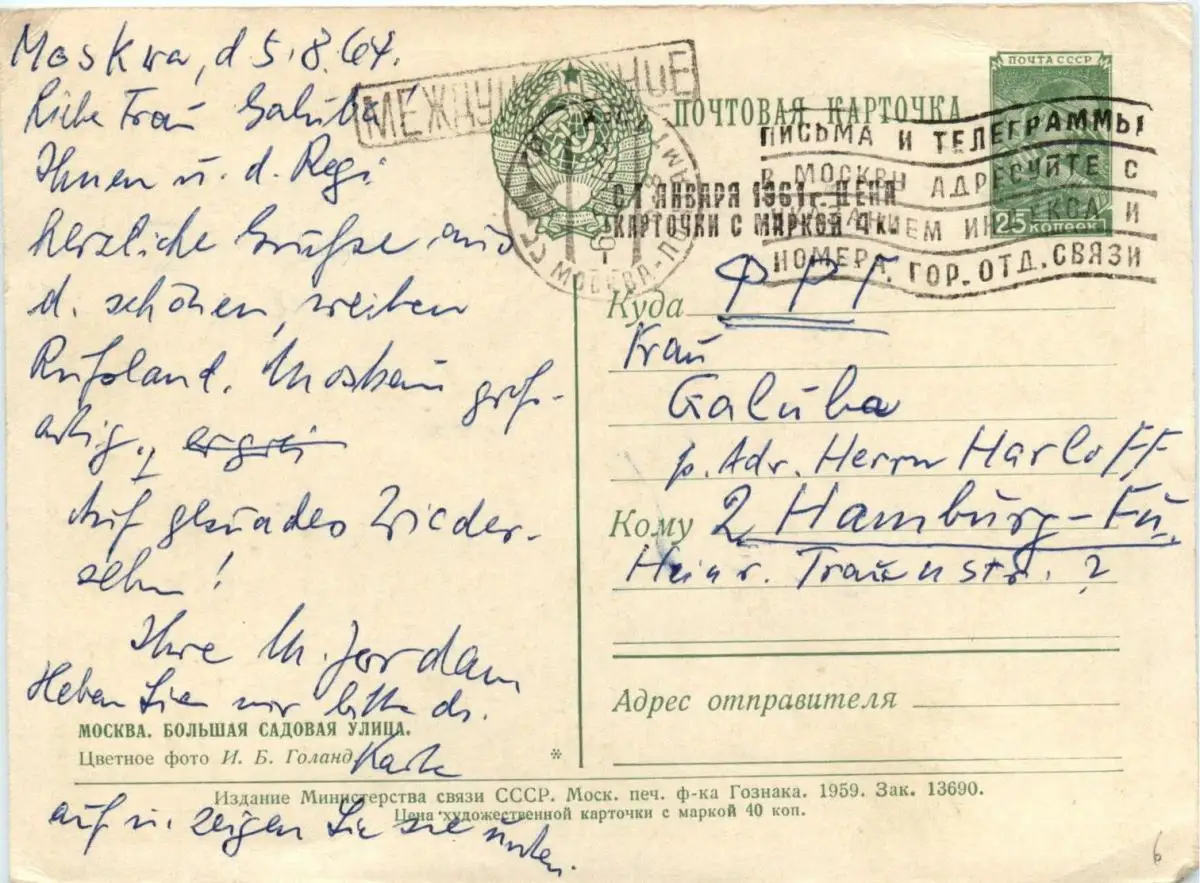 Moskwa, d 5.8.64.
Liebe Frau Galuba!
Ihnen u. d. Regi
herzliche Grüße aus
d. schönen, weiten
Rußland. Moskau groß-
artig.
Auf gesundes Wieder-
sehn!
Ihre M. Jordan
Heben Sie mir bitte ds.
Karte
auf u. zeigen Sie sie unten.
МОСКВА. БОЛЬШАЯ САДОВАЯ УЛИЦА.
Цветное фото И. Б. Голанд
МЕЖДУНАРОДНОЕ
ПОЧТОВАЯ КАРТОЧКА
ПОЧТА СССР
25 КОПЕЕК
ПИСЬМА И ТЕЛЕГРАММЫ
В МОСКВУ АДРЕСУЙТЕ С
УКАЗАНИЕМ ИНДЕКСА И
НОМЕРА ГОР. ОТД. СВЯЗИ
С 1 ЯНВАРЯ 1961 г. ЦЕНА
КАРТОЧКИ С МАРКОЙ 4 к.
МОСКВА-ПОЧТАМТ
Куда ФРГ.
Frau
Galuba
p. Adr. Herrn Harloff
Кому 2 Hamburg-Fu.
Heinr. Traunstr. 2
Адрес отправителя
Издание Министерства связи СССР. Моск. печ. ф-ка Гознака. 1959. Зак. 13690.
Цена художественной карточки с маркой 40 коп.
6